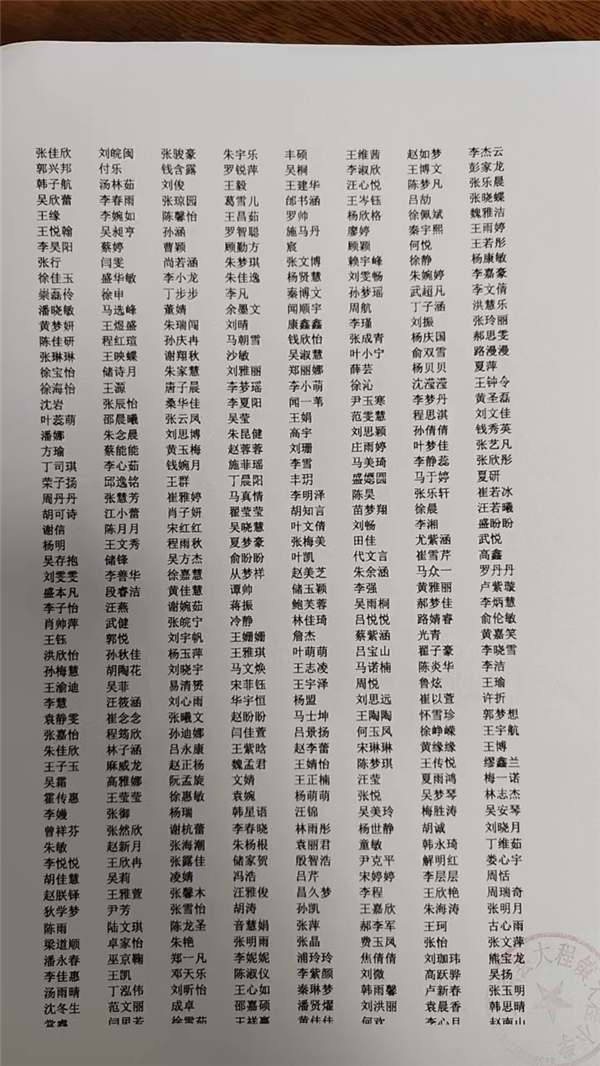 张佳欣 刘皖闽 张骏豪 朱宇乐 丰硕 王维茜 赵如梦 李杰云
郭兴邦 付乐 钱含露 罗锐萍 吴桐 李淑欣 王博文 彭家龙
韩子航 汤林茹 刘俊 王毅 王建华 汪心悦 陈梦凡 张乐晨
吴欣蕾 李春雨 张琼园 葛雪儿 邰书涵 王岑钰 吕劼 张晓蝶
王缘 李婉如 陈馨怡 王昌茹 罗帅 杨欣格 徐佩斌 魏雅洁
王悦翰 吴昶亨 孙涵 罗智聪 施马丹 廖婷 秦宇熙 王雨婷
李昊阳 蔡婷 曹颖 顾勤方 宸 顾颖 何悦 王若彤
张行 闫雯 尚若涵 朱梦琪 张文博 赖宇峰 徐静 杨康敏
徐佳玉 盛华敏 李小龙 朱佳逸 杨贤慧 刘雯畅 朱婉婷 李嘉豪
崇磊伶 徐申 丁步步 李凡 秦博文 孙梦瑶 武超凡 李文倩
潘晓敏 马选峰 董婧 余墨文 闻顺宇 周航 丁子涵 洪慧乐
黄梦妍 王煜盛 朱瑞闯 刘晴 康鑫鑫 李瑾 刘振 张玲丽
陈佳研 程红瑄 孙庆冉 马朝雪 钱欣怡 张成青 杨庆国 郝思雯
张琳琳 王映蝶 谢翔秋 沙敏 吴淑慧 叶小宁 俞双雪 路漫漫
徐宝怡 储诗月 朱家慧 刘雅丽 郑丽娜 薛芸 杨贝贝 夏萍
徐海怡 王源 唐子晨 李梦瑶 李小萌 徐沁 沈滢滢 王钟令
沈岩 张辰怡 桑华佳 李夏阳 闻一苇 尹玉寒 李梦丹 黄圣磊
叶蕊萌 邵晨曦 张云凤 吴莹 王娟 范雯慧 程思淇 刘文佳
潘娜 朱念晨 刘思博 朱昆健 高宇 刘思颖 孙倩倩 钱秀英
方瑜 蔡能能 黄玉梅 赵蓉蓉 刘珊 庄雨婷 叶梦佳 张艺凡
丁司琪 李心茹 钱婉月 施菲瑶 李雪 马美琦 李静蕊 张欣彤
荣子扬 邱逸铭 王群 丁晨阳 丰玥 盛嫕圆 马于婷 夏研
周丹丹 张慧芳 崔雅婷 马真情 李明泽 陈昊 张乐轩 崔若冰
胡可诗 江小蕾 肖子妍 翟莹莹 胡知言 苗梦翔 徐晨 汪若曦
谢信 陈月月 宋红红 吴晓慧 叶文倩 刘畅 李湘 盛盼盼
杨明 王文秀 程雨秋 夏梦豪 张梅美 田佳 尤紫涵 武悦
吴存抱 储锋 吴方杰 俞盼盼 叶凯 代文言 崔雪芹 高鑫
刘雯雯 李善华 徐嘉慧 从梦祥 赵美芝 朱余涵 马众一 罗丹丹
盛本凡 段春洁 黄佳慧 谭帅 储玉颖 李强 黄雅丽 卢紫璇
李子怡 汪燕 谢婉茹 蒋振 鲍芙蓉 吴雨桐 郝梦佳 李炳慧
肖帅萍 武健 张皖宁 冷静 林佳琦 吕悦悦 路婧睿 俞伦敏
王钰 郭悦 刘宇帆 王姗姗 詹杰 蔡紫涵 光青 黄嘉笑
洪欣怡 孙秋佳 杨玉萍 王雅琪 叶萌萌 吕宝山 翟子豪 李晓雪
孙梅慧 胡陶花 刘晓宇 马文焕 王志凌 马诺楠 陈炎华 李洁
王渝迪 吴菲 易清赟 宋菲钰 王宇泽 周悦 鲁炫 王瑜
李慧 汪筱涵 刘心雨 华宇恒 杨盟 刘思远 崔以萱 许折
袁静雯 崔念念 张曦文 赵盼盼 马士坤 王陶陶 怀雪珍 郭梦想
张嘉怡 程筠欣 孙迪娜 闫佳萱 吕景扬 何玉凤 徐峥嵘 王宇航
朱佳欣 林子涵 吕永康 王紫晗 赵李蕾 宋琳琳 黄缘缘 王博
王子玉 麻威龙 赵正杨 魏孟君 王婧怡 陈梦琪 王传悦 缪鑫兰
吴霜 高雅娜 阮孟旋 文婧 王正楠 汪莹 夏雨鸿 梅一诺
霍传惠 王莹莹 徐惠敏 袁婉 杨萌萌 张悦 吴梦琴 林志杰
李嫚 张御 杨瑞 韩星语 汪锦 吴美玲 梅胜涛 吴安琴
曾祥芬 张然欣 谢杭蕾 李春晓 林雨彤 杨世静 胡诚 刘晓月
朱敏 赵新月 张海潮 朱杨根 袁丽君 童敏 韩永琦 丁维茹
李悦悦 王欣冉 张露佳 储家贺 殷智浩 尹克平 解明红 娄心宇
胡佳慧 吴莉 凌婧 冯浩 吕芹 宋婷婷 李层层 周恬
赵朕锋 王雅萱 张馨木 汪雅俊 昌久梦 李程 王欣艳 周瑞奇
狄学梦 尹芳 张雪怡 胡涛 孙凯 王嘉欣 朱海涛 张明月
陈雨 陆文琪 陈龙圣 音慧娟 张萍 郝李军 王珂 古心雨
梁道顺 卓家怡 朱艳 张明雨 张晶 费玉凤 张怡 张文萍
潘永春 巫京鞠 郑一凡 李妮妮 浦玲玲 焦倩倩 刘珈玮 熊宝龙
李佳惠 王凯 邓天乐 陈淑仪 李紫颜 刘微 高跃骅 吴扬
汤雨晴 丁泓伟 刘昕怡 王心如 秦琳梦 韩雨馨 卢新春 张玉明
沈冬生 范文丽 成卓 邵嘉硕 潘贤燿 刘洪丽 袁晨香 韩思晴